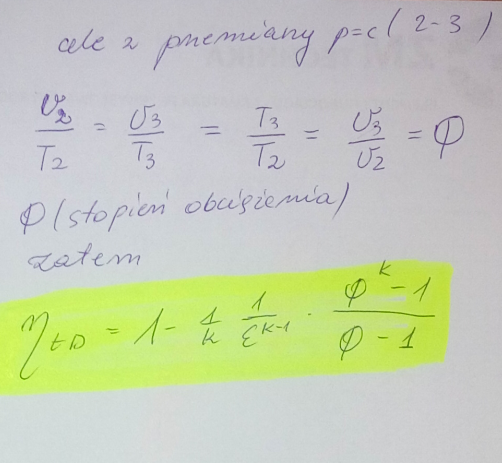 ale z przemiany p=c (2-3)
v₂/T₂ = v₃/T₃ = T₃/T₂ = v₃/v₂ = φ
φ (stopień obciążenia)
zatem
η_tD = 1 - 1/k · 1/ε^(k-1) · (φ^k - 1)/(φ - 1)